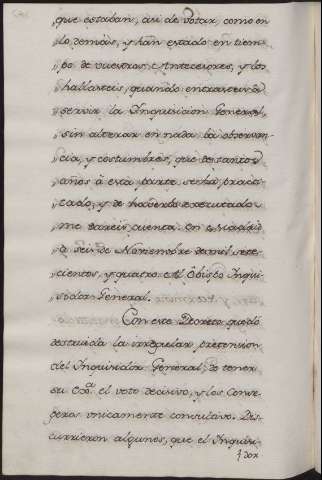 que estaban, asi de votar, como en
lo demàs, y han estado en tiem-
po de vuestros Antecesores, y los
hallasteis, quando entrasteis à
servir la Inquisicion General,
sin alterar en nada la observan-
cia, y costumbres, que de tantos
años à esta parte se ha practi-
cado; y de haverlo executado
me dareis cuenta. En Madrid
à seis de Noviembre de mil sete-
cientos, y quatro = Al Obispo Inqui-
sidor General.
Con este Decreto quedò
destruida la irregular pretension
del Inquisidor General, de tener
su Exª. el voto decisivo, y los Conse-
geros unicamente consultivo. Dis-
currieron algunos, que el Inquisi-
dor